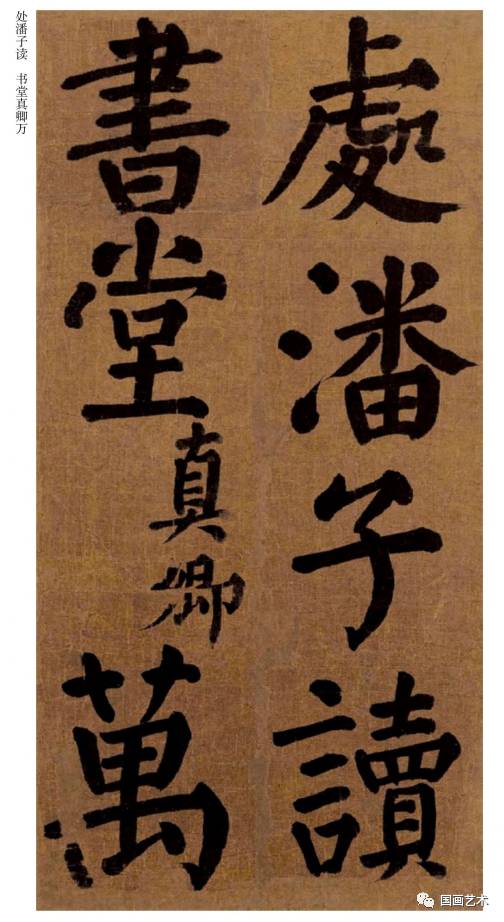 处潘子读 书堂真卿万
處潘子讀
書堂真卿萬
国画艺术